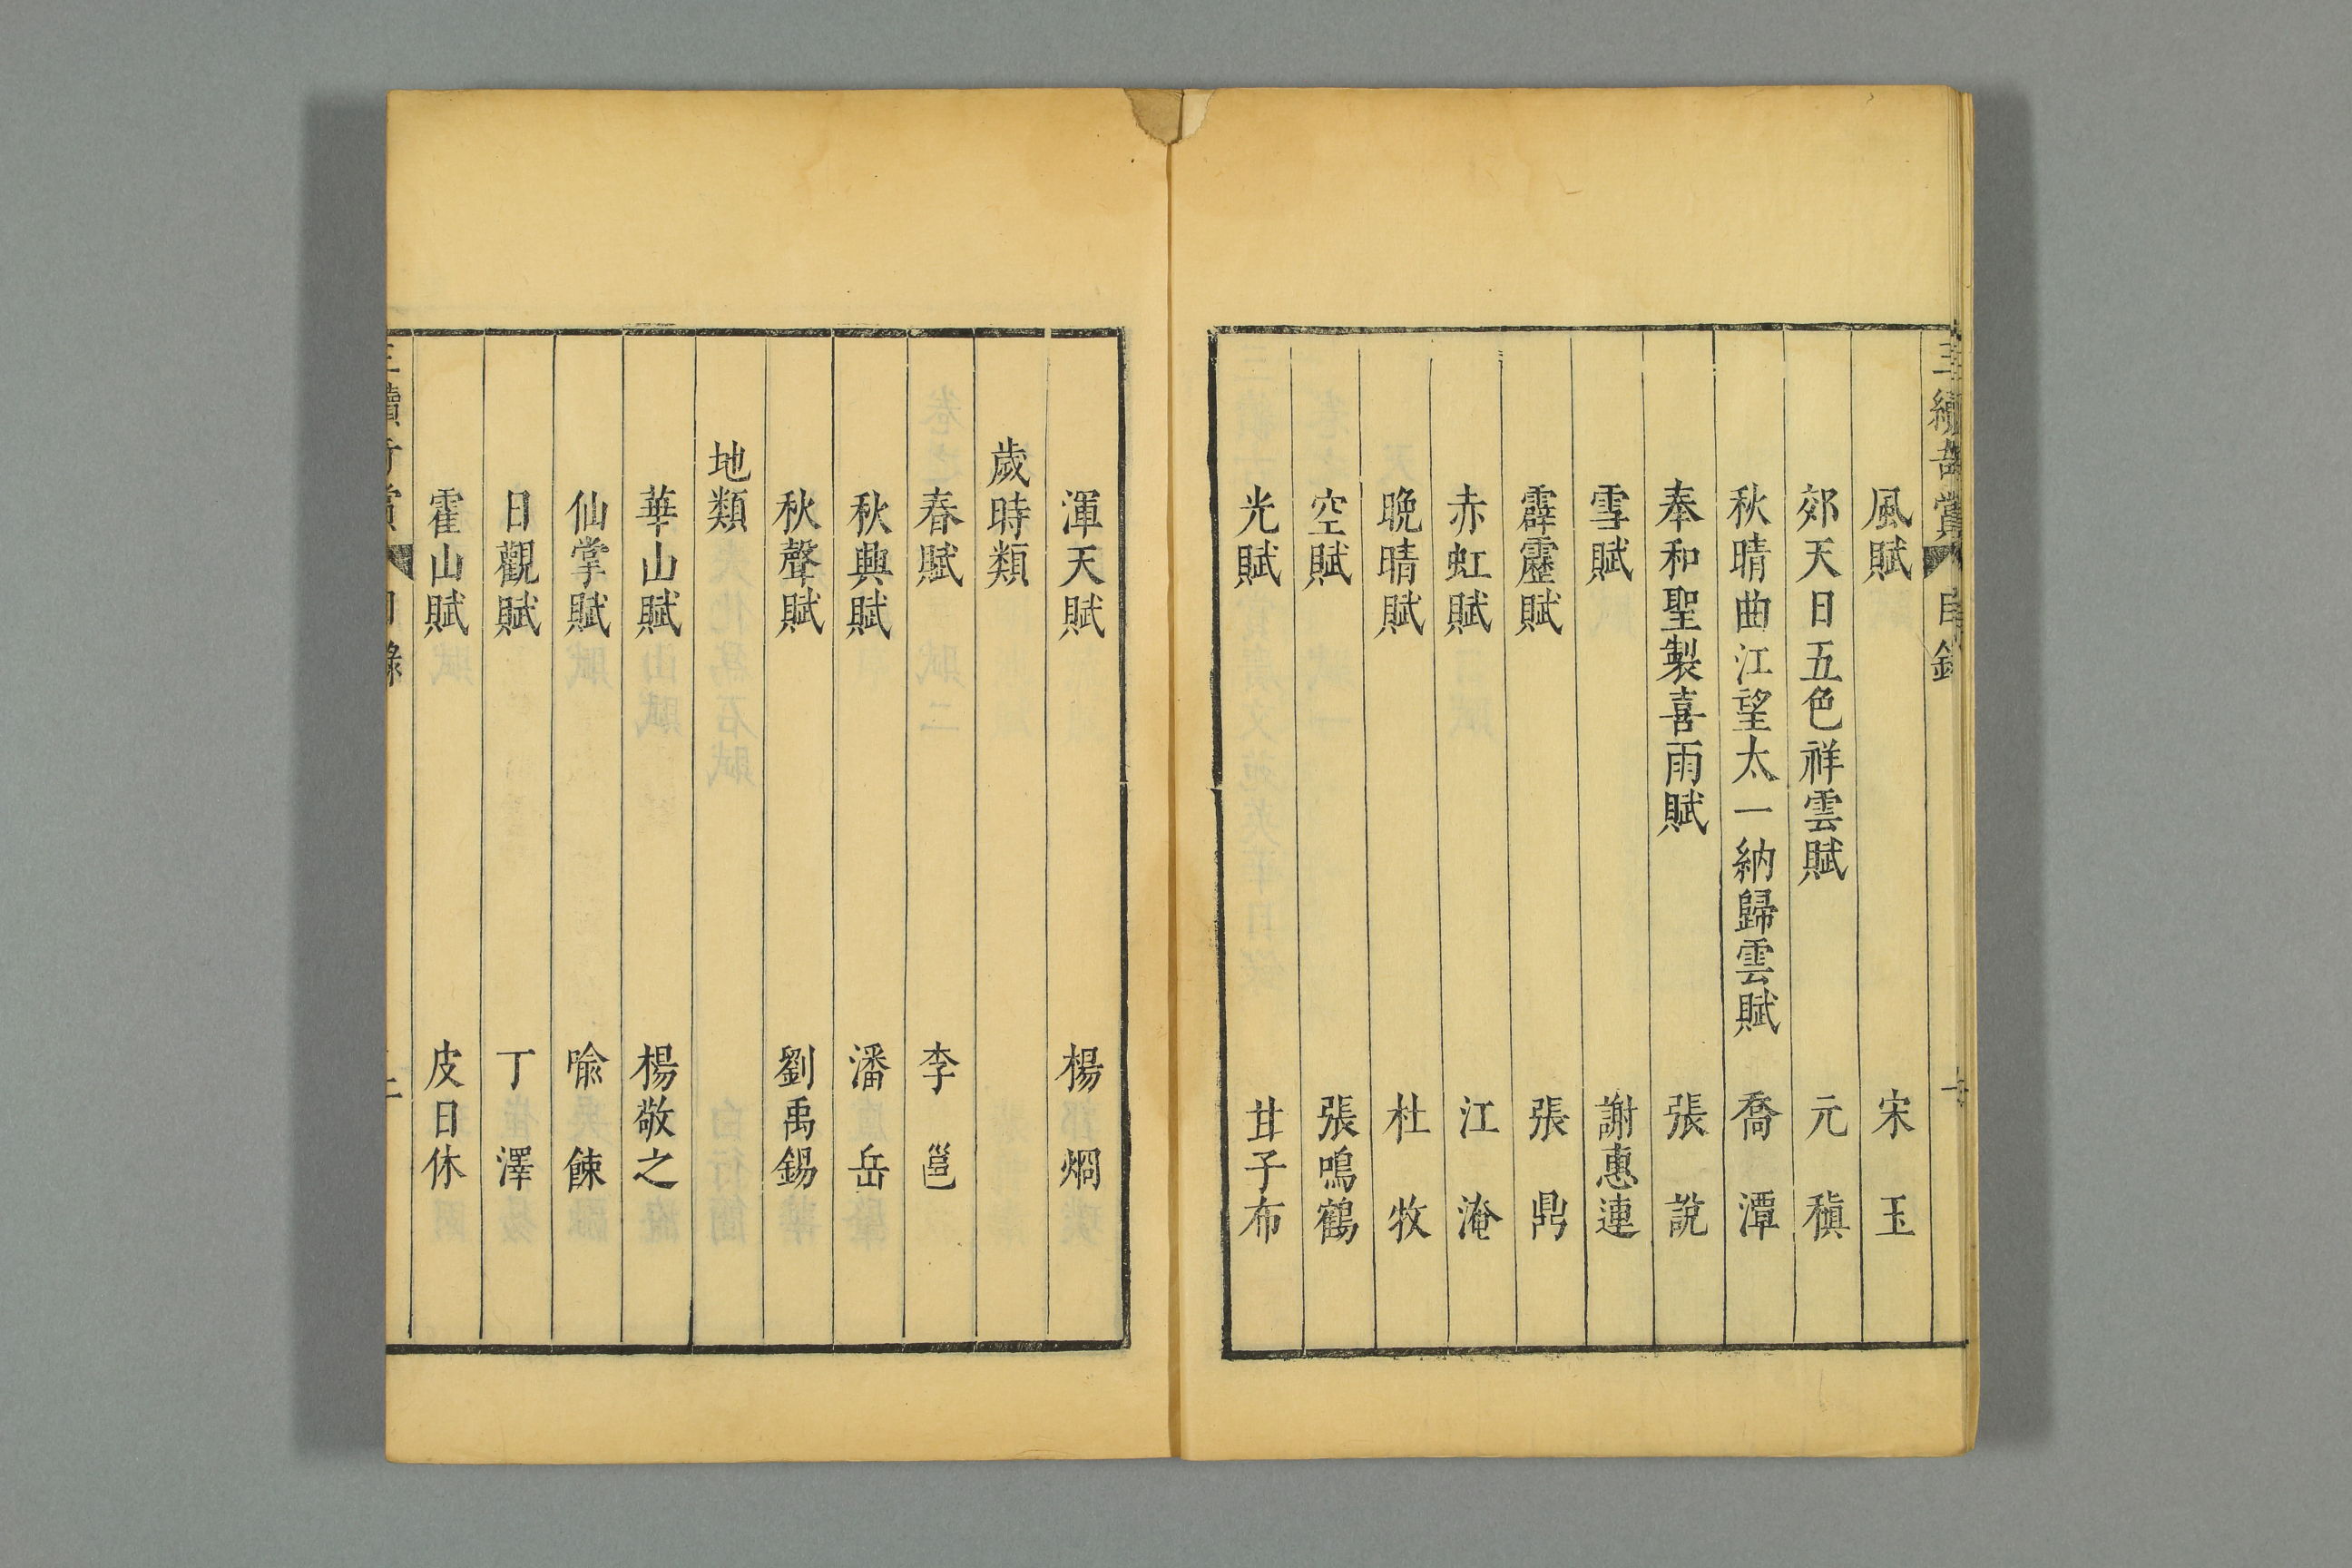 風賦 宋玉
郊天日五色祥雲賦 元稹
秋晴曲江望太一納歸雲賦 喬潭
奉和聖製喜雨賦 張說
雪賦 謝惠連
霹靂賦 張鼎
赤虹賦 江淹
晚晴賦 杜牧
空賦 張鳴鶴
光賦 甘子布
渾天賦 楊烱
歲時類
春賦 李邕
秋興賦 潘岳
秋聲賦 劉禹錫
地類
華山賦 楊敬之
仙掌賦 喩餗
日觀賦 丁澤
霍山賦 皮日休